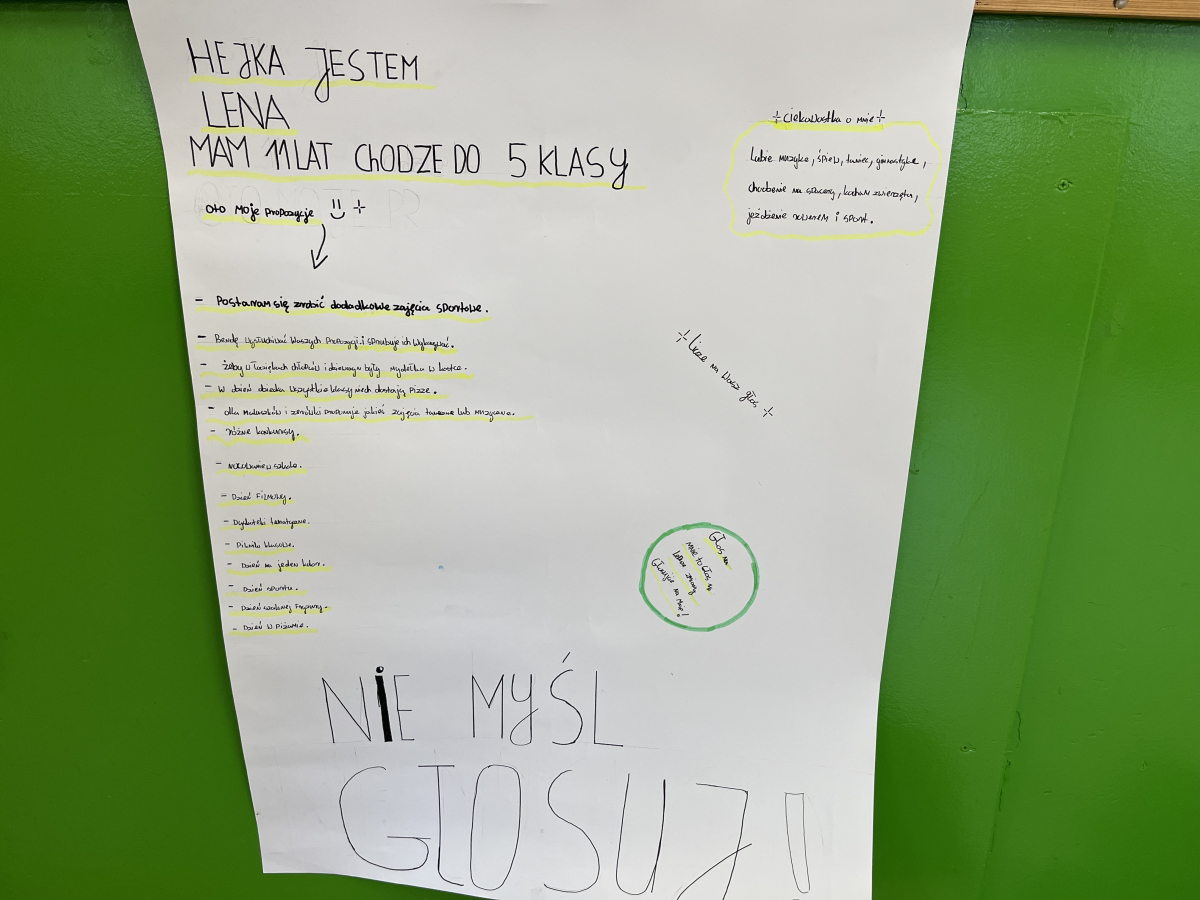 HEJKA JESTEM
LENA
MAM 11 LAT CHODZE DO 5 KLASY
oto moje propozycje
- Postaram się zrobić dodadkowe zajęcia sportowe.
- Bendę wysłuchiwać waszych propozycji i sprubuje ich wykonywać.
- żeby w łazienkach chłopców i dziewczyn były mydełka w kostce.
- W dzień dziecka wszystkie klasy niech dostają pizze.
- dla maluszków i zerówki proponuje jakieś zajęcia taneczne lub muzyczne.
- różne konkursy.
- nocowanie w szkole.
- Dzień Filmowy.
- Dyskoteki tematyczne.
- Pikniki klasowe.
- Dzień na jeden kolor.
- Dzień sportu.
- Dzień szalonej fryzury.
- Dzień w Piżamie.
Ciekawostka o mnie
Lubie muzyke, śpiew, taniec, gimnastyke,
chodzenie na spacery, kocham zwierzęta,
jeżdżenie rowerem i sport.
Licze na wasz głos
Głos na
mnie to Głos na
zmiany
Głosujcie na mnie!
NIE MYŚL
GŁOSUJ!